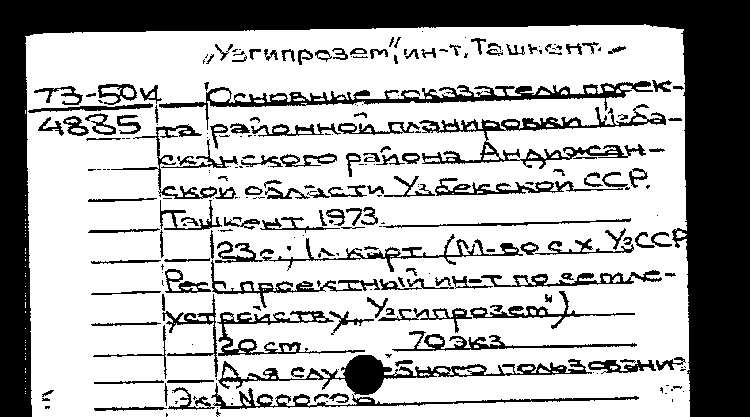 „Узгипрозем", ин-т, Ташкент. –
73-50И Основные показатели проек-
4885 та районной планировки Изба-
сканского района Андижан-
ской области Узбекской ССР.
Ташкент, 1973.
23 с.; 1 л. карт. (М-во с.х. УзССР
Респ. проектный ин-т по земле-
устройству „Узгипрозем").
20 см. 70 экз
Для служебного пользования
Экз. №